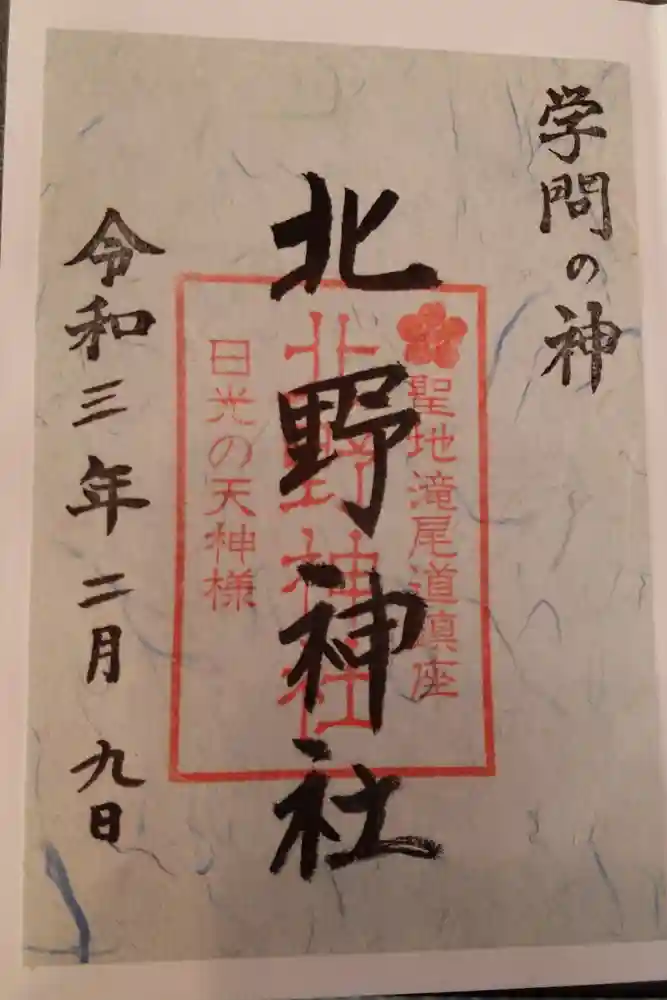 学問の神
聖地滝尾道鎮座
北野神社
北野神社
日光の天神様
令和三年二月九日